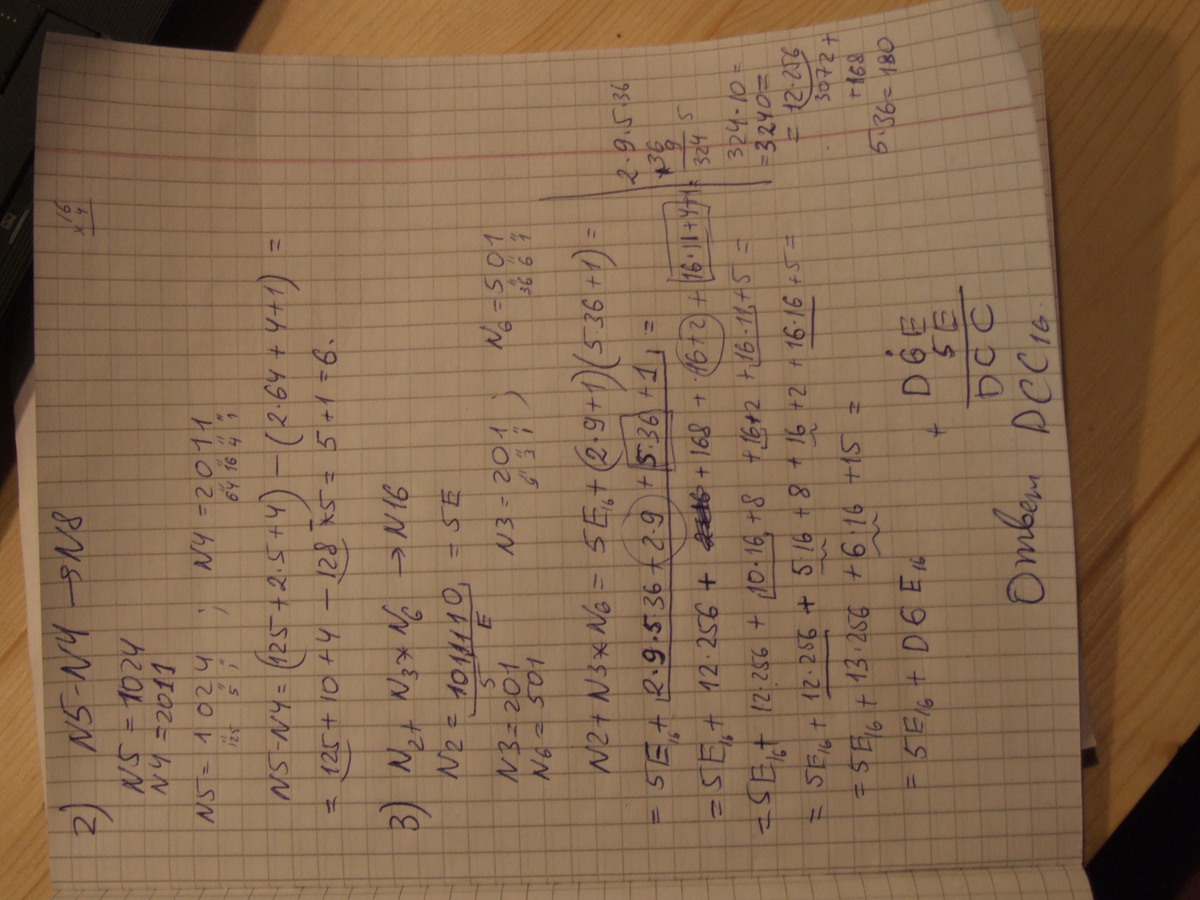 2) N5-N4 → N8
× 16
4
N5 = 1024
N4 = 2011
N5 = 1 0 2 4 ; N4 = 2 0 1 1
125 5 1 64 16 4 1
N5-N4 = (125 + 2·5 + 4) - (2·64 + 4 + 1) =
= 125 + 10 + 4 - 128 - 5 = 5 + 1 = 6.
3) N2 + N3 * N6 → N16
N2 = 1011110 = 5E
5 E
N3 = 201
N6 = 501
N3 = 2 0 1 ; N6 = 5 0 1
9 3 1 36 6 1
N2 + N3*N6 = 5E16 + (2·9+1)(5·36+1) =
= 5E16 + 2·9·5·36 + 2·9 + 5·36 + 1 =
= 5E16 + 12·256 + + 168 + 16+2 + 16·11+4+1 =
= 5E16 + 12·256 + 10·16 + 8 + 16+2 + 16·11 + 5 =
= 5E16 + 12·256 + 5·16 + 8 + 16 + 2 + 16·16 + 5 =
= 5E16 + 13·256 + 6·16 + 15 =
= 5E16 + D6E16
+ D6E
5E
DCC
Ответ DCC16.
2·9·5·36
×36
9
324 5
324·10 =
= 3240 =
= 12·256
3072 +
+168
5·36 = 180